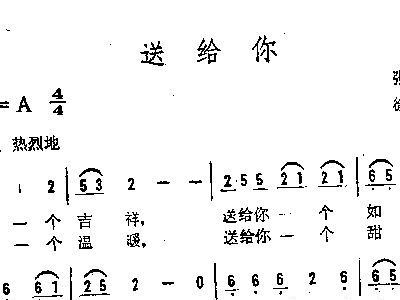 送给你
= A 4/4
热烈地
i 2 | 5 3 2 — — | 2·5 5 2 1 2 1 | 6 5
一个吉祥， 送给你一个如
一个温暖， 送给你一个甜
6 6 1 | 2 5 2 — 0 | 6 6 6 2 | 6 5